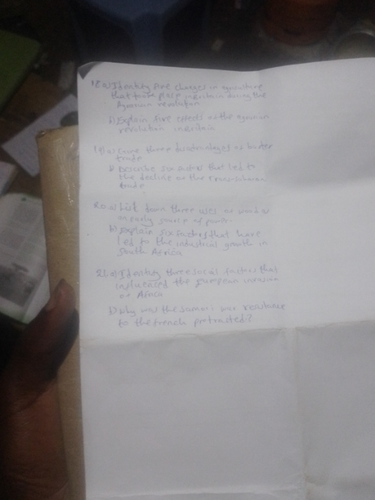 18 a) Identify five changes in agriculture
that took place in Britain during the
Agrarian revolution
b) Explain five effects of the agrarian
revolution in Britain
19 a) Give three disadvantages of barter
trade
b) Describe six factors that led to
the decline of the Trans-Saharan
trade
20 a) List down three uses of wood as
an early source of
b) Explain six factors that have
led to the industrial growth in
South Africa
21 a) Identify three social factors that
influenced the European invasion
of Africa
b) Why was the Samori war resistance
to the French protracted?